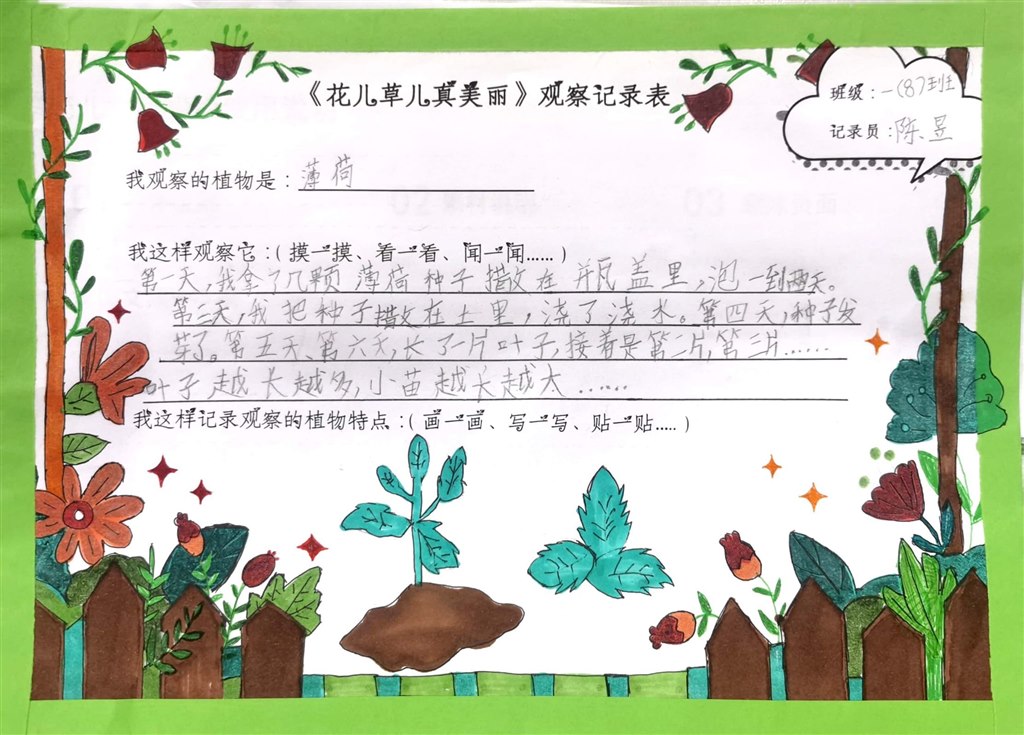 《花儿草儿真美丽》观察记录表
班级：一（8）班
记录员：陈昱
我观察的植物是：薄荷
我这样观察它：（摸一摸、看一看、闻一闻……）
第一天，我拿了几颗薄荷种子撒在瓶盖里，泡一到两天。
第三天，我把种子撒在土里，浇了浇水。第四天，种子发
芽了。第五天、第六天，长了一片叶子，接着是第二片，第三片……
叶子越长越多，小苗越长越大……
我这样记录观察的植物特点：（画一画、写一写、贴一贴……）